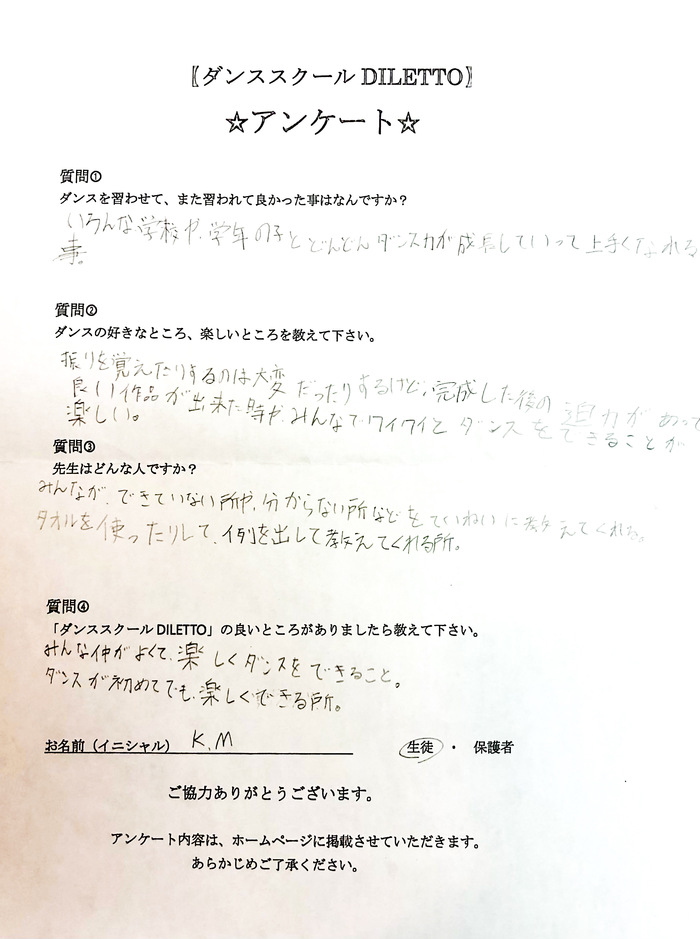 〖ダンススクール DILETTO〗
☆アンケート☆
質問①
ダンスを習わせて、また習われて良かった事はなんですか？
いろんな学校や、学年の子とどんどんダンス力が成長していって上手くなれる
事。
質問②
ダンスの好きなところ、楽しいところを教えて下さい。
振りを覚えたりするのは大変だったりするけど、完成した後の迫力があって
良い作品が出来た時や、みんなでワイワイとダンスをできることが
楽しい。
質問③
先生はどんな人ですか？
みんなが、できていない所や、分からない所などをていねいに教えてくれる。
タオルを使ったりして、例を出して教えてくれる所。
質問④
「ダンススクール DILETTO」の良いところがありましたら教えて下さい。
みんな仲がよくて、楽しくダンスをできること。
ダンスが初めてでも、楽しくできる所。
お名前（イニシャル） K.M 生徒 ・ 保護者
ご協力ありがとうございます。
アンケート内容は、ホームページに掲載させていただきます。
あらかじめご了承ください。